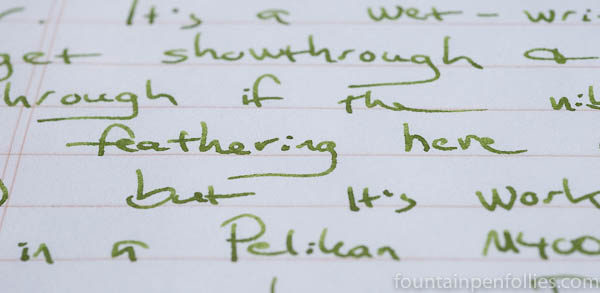 It's a wet-wri
get showthrough &
hrough if the nib
feathering here
but It's work
in a Pelikan M400
fountainpenfollies.com